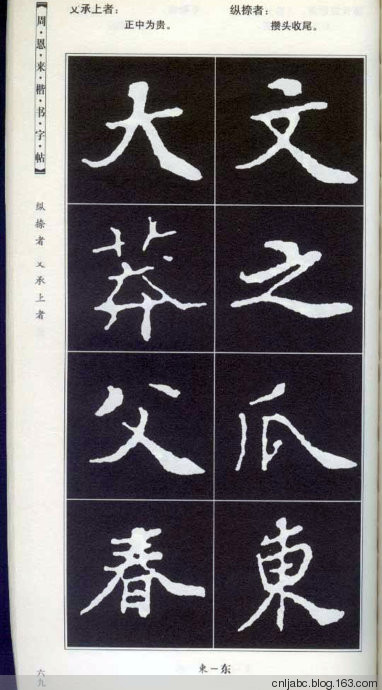 纵捺者：
攒头收尾。
又承上者：
正中为贵。
文之瓜東
大莽父春
【周·恩·来·楷·书·字·帖】
纵捺者 又承上者
六九
東—东
cnljabc.blog.163.com